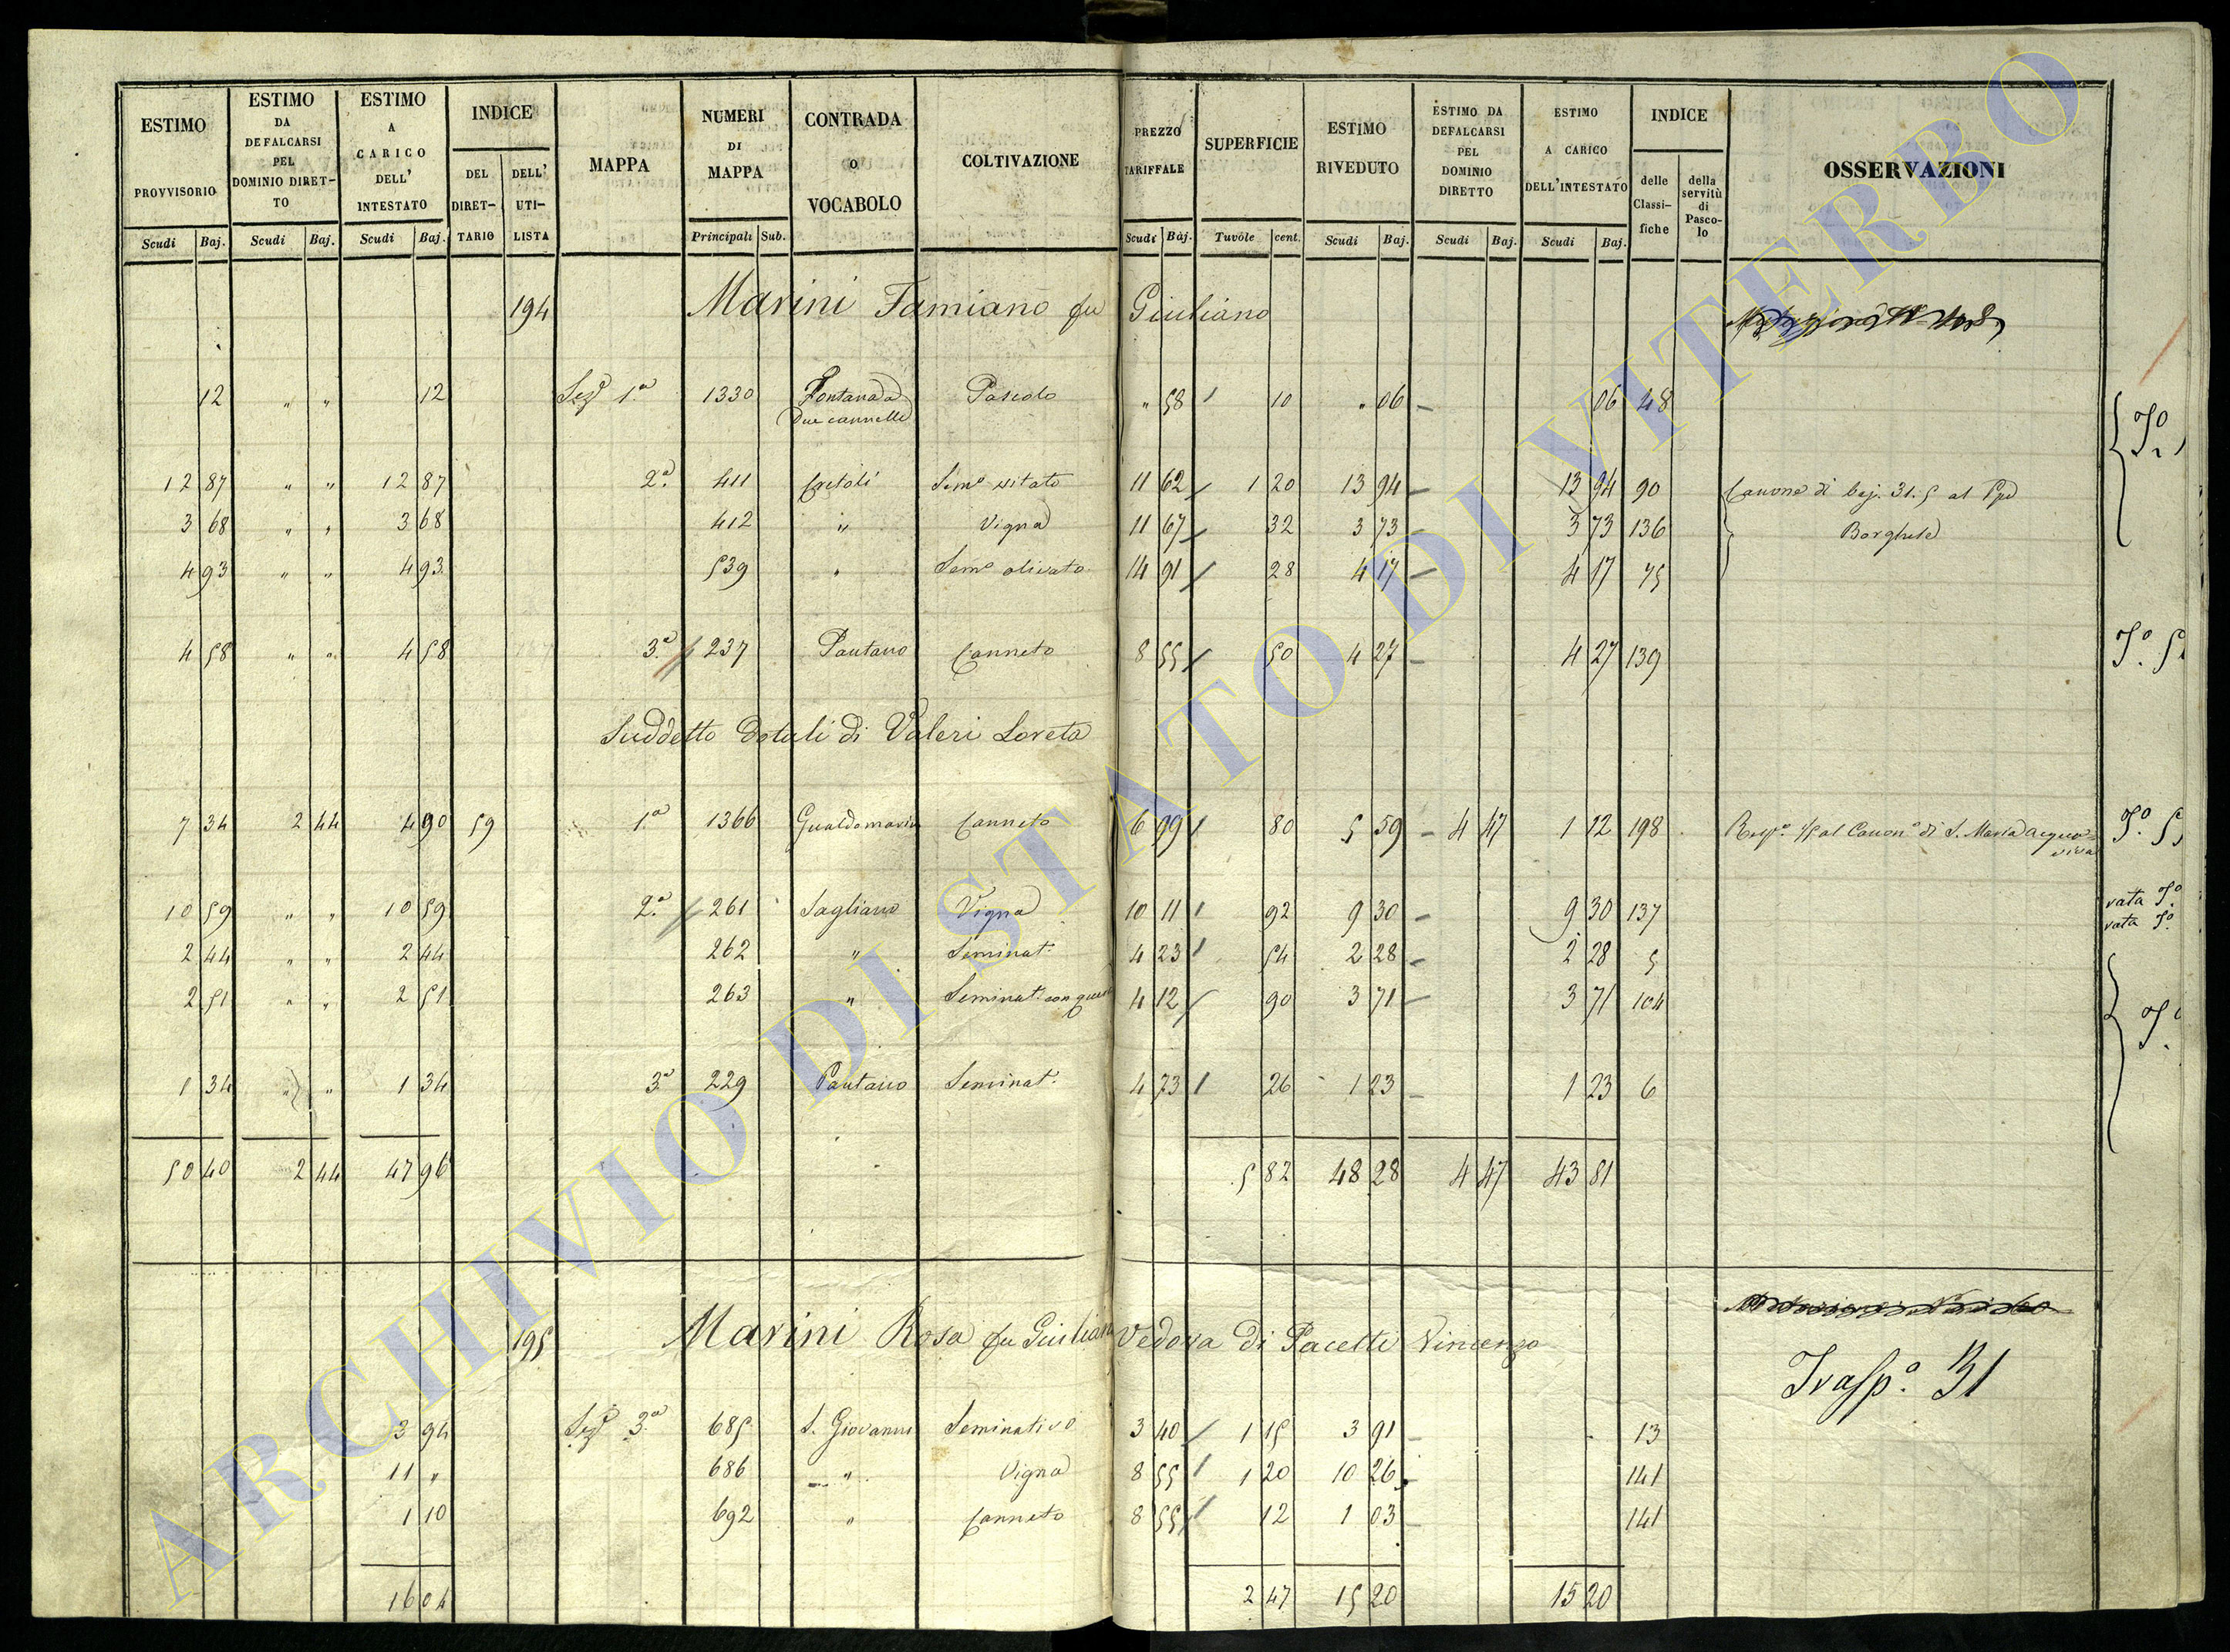 ESTIMO PROVVISORIO Scudi Baj.
ESTIMO DA DEFALCARSI PEL DOMINIO DIRET-TO Scudi Baj.
ESTIMO A CARICO DELL' INTESTATO Scudi Baj.
INDICE DEL DIRET-TARIO DELL' UTI-LISTA
MAPPA
NUMERI DI MAPPA Principali Sub.
CONTRADA O VOCABOLO
COLTIVAZIONE
PREZZO TARIFFALE Scudi Baj.
SUPERFICIE Tuvole cent.
ESTIMO RIVEDUTO Scudi Baj.
ESTIMO DA DEFALCARSI PEL DOMINIO DIRETTO Scudi Baj.
ESTIMO A CARICO DELL'INTESTATO Scudi Baj.
INDICE delle Classi-fiche della servitù di Pasco-lo
OSSERVAZIONI
194 Marini Famiano fu Giuliano
12 " " 12 Sez.e 1.a 1330 Fontana a Due cannelle Pascolo " 58 10 " 06 06 48
12 87 " " 12 87 2.a 411 Sem.o vitato 11 62 1 20 13 94 13 94 90 Canone di baj. 31.5 al Ppe
3 68 " " 3 68 412 " Vigna 11 67 32 3 73 3 73 136 Borghese
4 93 " " 4 93 539 " Sem.o olivato 14 91 28 4 17 4 17 75
4 58 " " 4 58 3.a 237 Pantano Canneto 8 55 50 4 27 4 27 139
Suddetto Dotali di Valeri Loreta
7 34 2 44 4 90 59 1.a 1366 Gualdomaria Canneto 6 99 80 5 59 4 47 1 12 198 al Canon.o di S. Maria acqua=viva
10 59 " " 10 59 2.a 261 Sagliano Vigna 10 11 92 9 30 9 30 137
2 44 " " 2 44 262 " Seminat. 4 23 54 2 28 2 28 5
2 51 " " 2 51 263 " Seminat. con 4 12 90 3 71 3 71 104
1 34 " " 1 34 3.a 229 Pantano Seminat. 4 73 26 1 23 1 23 6
50 40 2 44 47 96 5 82 48 28 4 47 43 81
195 Marini Rosa fu Giuliano Vedova di Pacelli Vincenzo
Trasp.o 31
3 94 Sez.e 3.a 685 S. Giovanni Seminativo 3 40 1 15 3 91 13
11 " 686 " Vigna 8 55 1 20 10 26 141
1 10 692 " Canneto 8 55 12 1 03 141
16 04 2 47 15 20 15 20
vata
vata
ARCHIVIO DI STATO DI VITERBO